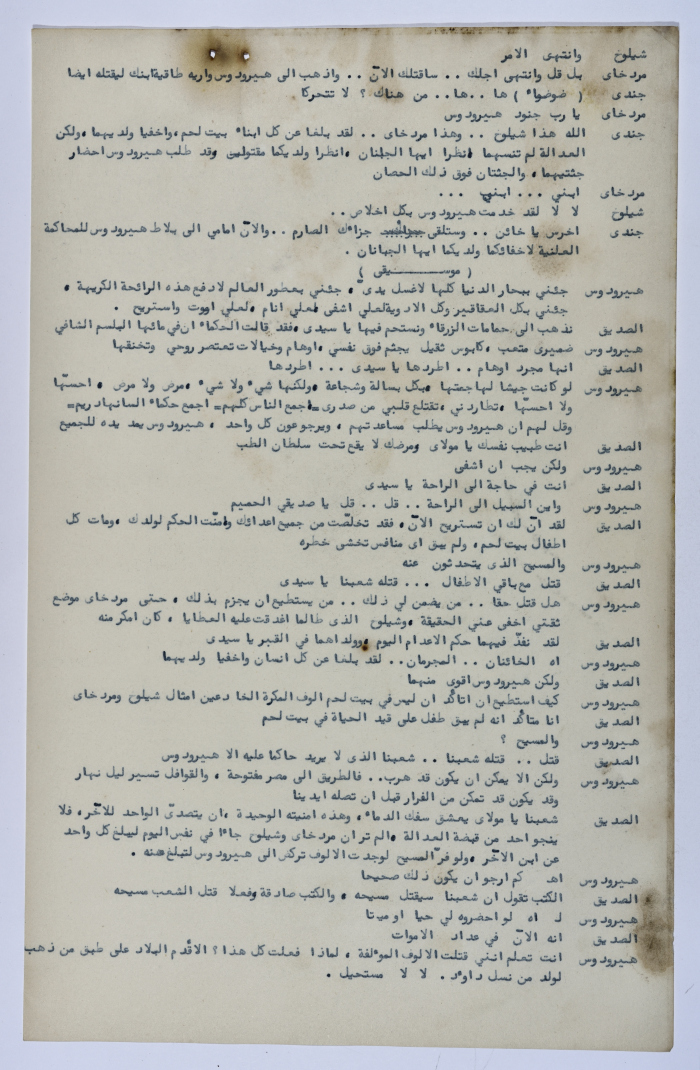 شيلوخ وانتهى الامر
مردخاى بل قل وانتهى اجلك .. ساقتلك الآن .. واذهب الى هيرودوس واريه طاقية ابنك ليقتله ايضا
جندى ( ضوضاء ) ها .. ها .. من هناك ؟ لا تتحركا
مردخاى يا رب جنود هيرودوس
جندى الله هذا شيلوخ .. وهذا مردخاى .. لقد بلغا عن كل ابناء بيت لحم ، واخفيا ولديهما ، ولكن
العدالة لم تنسهما انظرا ايها الجبانان ، انظرا ولديكما مقتولين وقد طلب هيرودوس احضار
جثتيهما ، والجثتان فوق ذلك الحصان
مردخاى ابني ... ابني ...
شيلوخ لا لا لقد خدمت هيرودوس بكل اخلاص ..
جندى اخرس يا خائن .. وستلقى جزاءك الصارم .. والآن امامي الى بلاط هيرودوس للمحاكمة
العلنية لاخفائكما ولديكما ايها الجبانان .
( موسيقى )
هيرودوس جئني ببحار الدنيا كلها لاغسل يديّ ، جئني بعطور العالم لادفع هذه الرائحة الكريهة ،
جئني بكل العقاقير وكل الادوية لعلي اشفى لعلي انام ، لعلي اموت واستريح .
الصديق نذهب الى حمامات الزرقاء ونستحم فيها يا سيدى ، فقد قالت الحكماء ان في مائها البلسم الشافي
هيرودوس ضميرى متعب ، كابوس ثقيل يجثم فوق نفسي ، اوهام وخيالات تعتصر روحي وتخنقها
الصديق انها مجرد اوهام .. اطردها يا سيدى ... اطردها
هيرودوس لو كانت جيشا لهاجمتها ، بكل بسالة وشجاعة ، ولكنها شيء ولا شيء ، مرض ولا مرض ، احسّها
ولا احسّها ، تطاردني ، تقتلع قلبي من صدرى = اجمع الناس كلهم = اجمع حكماء السانهادريم =
وقل لهم ان هيرودوس يطلب مساعدتهم ، ويرجو عون كل واحد ، هيرودوس يمد يده للجميع
الصديق انت طبيب نفسك يا مولاى ومرضك لا يقع تحت سلطان الطب
هيرودوس ولكن يجب ان اشفى
الصديق انت في حاجة الى الراحة يا سيدى
هيرودوس واين السبيل الى الراحة .. قل .. قل يا صديقي الحميم
الصديق لقد آن لك ان تستريح الآن ، فقد تخلّصت من جميع اعدائك وامنّت الحكم لولدك ، ومات كل
اطفال بيت لحم ، ولم يبق اى منافس تخشى خطره
هيرودوس والمسيح الذى يتحدثون عنه
الصديق قتل مع باقي الاطفال ... قتله شعبنا يا سيدى
هيرودوس هل قتل حقا .. من يضمن لي ذلك .. من يستطيع ان يجزم بذلك ، حتى مردخاى موضع
ثقتي اخفى عني الحقيقة ، وشيلوخ الذى طالما اغدقت عليه العطايا ، كان امكر منه
الصديق لقد نفذّ فيهما حكم الاعدام اليوم ، وولداهما في القبر يا سيدى
هيرودوس اه الخائنان .. المجرمان .. لقد بلغا عن كل انسان واخفيا ولديهما
الصديق ولكن هيرودوس اقوى منهما
هيرودوس كيف استطيع ان اتأكد ان ليس في بيت لحم الوف المكرة الخادعين امثال شيلوخ ومردخاى
الصديق انا متأكد انه لم يبق طفل على قيد الحياة في بيت لحم
هيرودوس والمسيح ؟
الصديق قتل .. قتله شعبنا .. شعبنا الذى لا يريد حاكما عليه الا هيرودوس
هيرودوس ولكن الا يمكن ان يكون قد هرب .. فالطريق الى مصر مفتوحة ، والقوافل تسير ليل نهار
وقد يكون قد تمكن من الفرار قبل ان تصله ايدينا
الصديق شعبنا يا مولاى يعشق سفك الدماء ، وهذه امنيته الوحيدة ، ان يتصدىّ الواحد للآخر ، فلا
ينجو احد من قبضة العدالة ، الم تر ان مردخاى وشيلوخ جاءا في نفس اليوم ليبلغ كل واحد
عن ابن الآخر ، ولو فرّ المسيح لوجدت الالوف تركض الى هيرودوس لتبلغ عنه .
هيرودوس اه كم ارجو ان يكون ذلك صحيحا
الصديق الكتب تقول ان شعبنا سيقتل مسيحه ، والكتب صادقة وفعلا قتل الشعب مسيحه
هيرودوس اه لو احضروه لي حيا او ميتا
الصديق انه الآن في عداد الاموات
هيرودوس انت تعلم انني قتلت الالوف المؤلفة ، لماذا فعلت كل هذا ؟ الأقدم البلاد على طبق من ذهب
لولد من نسل داود . لا لا مستحيل .